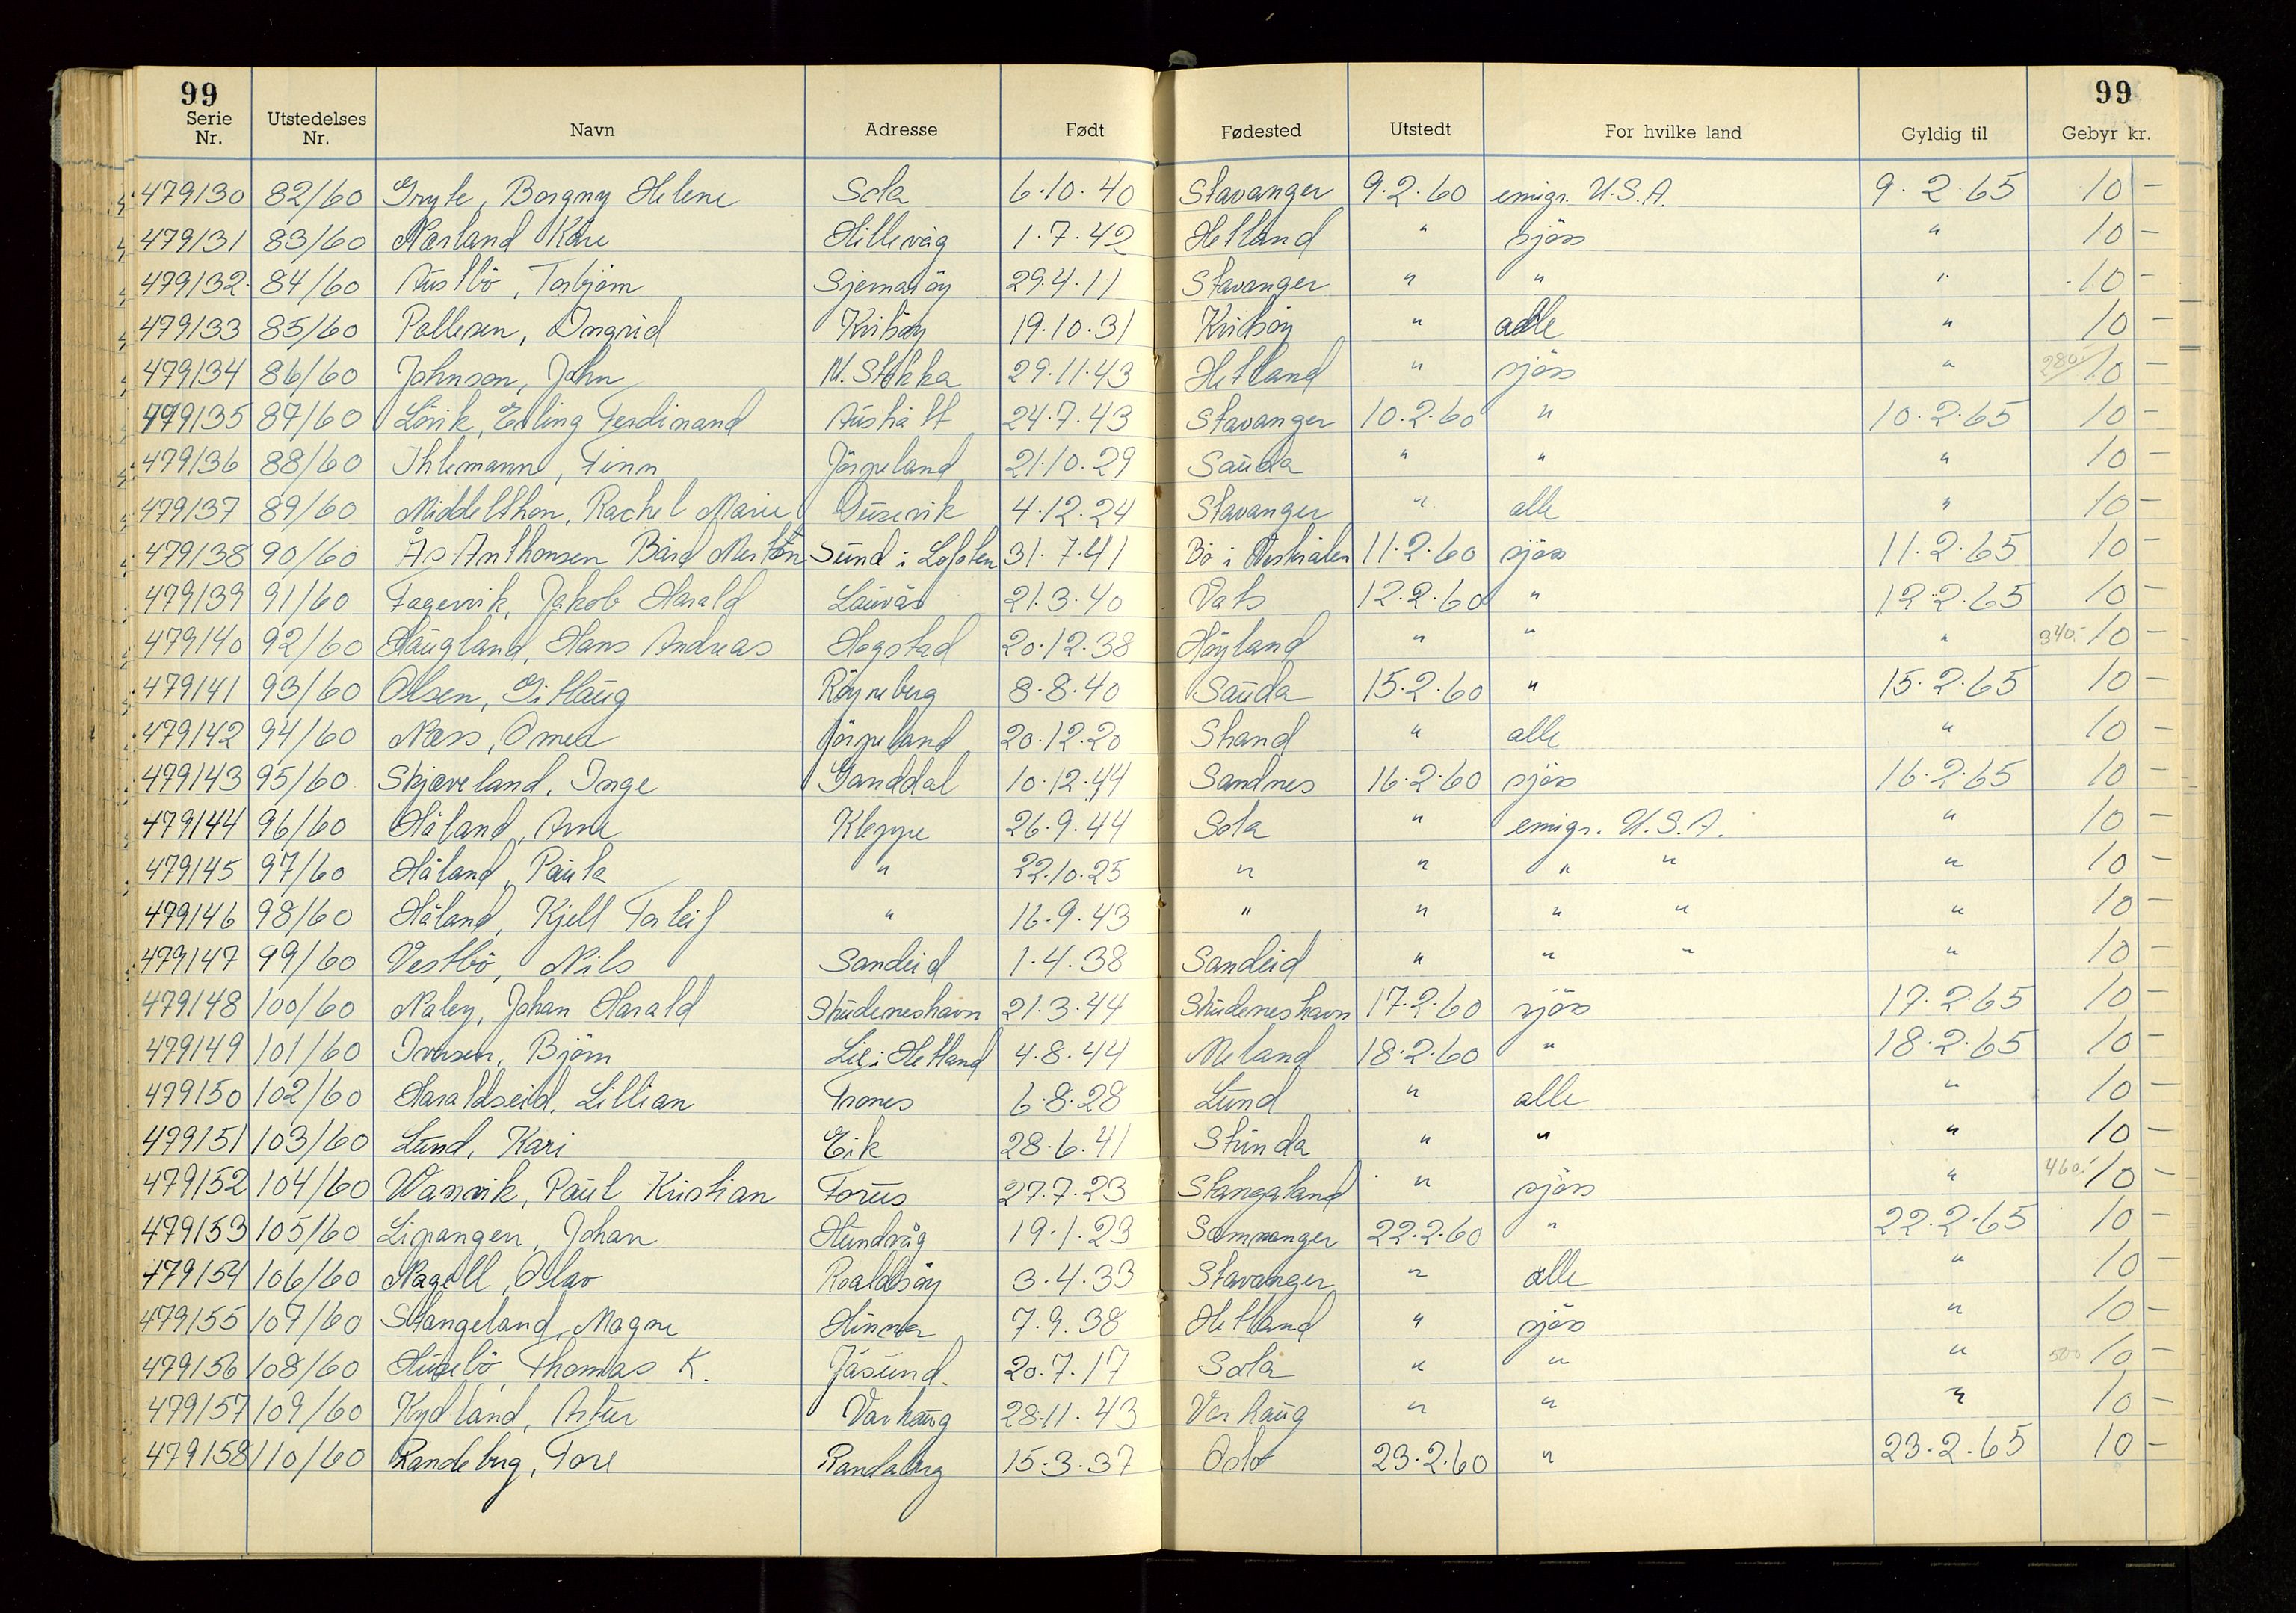 99 99
Serie Nr. Utstedelses Nr. Navn Adresse Født Fødested Utstedt For hvilke land Gyldig til Gebyr kr.
479130 82/60 Gryte, Borgny Helene Sola 6.10.40 Stavanger 9.2.60 emigr. U.S.A. 9.2.65 10 –
479131 83/60 Nærland Kåre Hillevåg 1.7.42 Hetland " sjøss " 10 –
479132 84/60 Austbö, Torbjørn Sjernaröy 29.4.11 Stavanger " " " 10 –
479133 85/60 Pallesen, Ingrid Kvitsöy 19.10.31 Kvitsöy " alle " 10 –
479134 86/60 Johnson, John M. Stokka 29.11.43 Hetland " sjöss " 280.- 10 –
479135 87/60 Lövik, Erling Ferdinand Austrått 24.7.43 Stavanger 10.2.60 " 10.2.65 10 –
479136 88/60 Ihlemann, Finn Jörpeland 21.10.29 Sauda " " " 10 –
479137 89/60 Middelthon, Rachel Marie Dusevik 4.12.24 Stavanger " alle " 10 –
479138 90/60 Ås Anthonsen Bård Morton Sund i Lofoten 31.7.41 Bö i Vesterålen 11.2.60 sjöss 11.2.65 10 –
479139 91/60 Fagervik, Jakob Harald Lauvås 21.3.40 Vats 12.2.60 " 12.2.65 10 –
479140 92/60 Haugland, Hans Andreas Hogstad 20.12.38 Höyland " " " 340.- 10 –
479141 93/60 Olsen, Gitlaug Röyneberg 8.8.40 Sauda 15.2.60 " 15.2.65 10 –
479142 94/60 Næss, Omea Jörpeland 20.12.20 Strand " alle " 10 –
479143 95/60 Skjæveland, Inge Ganddal 10.12.44 Sandnes 16.2.60 sjöss 16.2.65 10 –
479144 96/60 Håland, Arne Kleppe 26.9.44 Sola " emigr. U.S.A. " 10 –
479145 97/60 Håland, Paula " 22.10.25 " " " " " 10 –
479146 98/60 Håland, Kjell Torleif " 16.9.43 " " " " " 10 –
479147 99/60 Vestbö, Nils Sandeid 1.4.38 Sandeid " " " " 10 –
479148 100/60 Naley, Johan Harald Skudeneshavn 21.3.44 Skudeneshavn 17.2.60 sjöss 17.2.65 10 –
479149 101/60 Iversen, Björn Lie i Hetland 4.8.44 Meland 18.2.60 " 18.2.65 10 –
479150 102/60 Haraldseid, Lillian Trones 6.8.28 Lund " alle " 10 –
479151 103/60 Lund, Kari Eik 28.6.41 Strinda " " " 10 –
479152 104/60 Wansvik, Paul Kristian Forus 27.7.23 Stangaland " sjöss " 460.- 10 –
479153 105/60 Lipangen, Johan Hundvåg 19.1.23 Samnanger 22.2.60 " 22.2.65 10 –
479154 106/60 Nagell, Olav Roaldsöy 3.4.33 Stavanger " alle " 10 –
479155 107/60 Stangeland, Magne Hinna 7.9.38 Hetland " sjöss " 10 –
479156 108/60 Husebö, Thomas K. Jåsund. 20.7.17 Sola " " " 500 10 –
479157 109/60 Kydland, Artur Varhaug 28.11.43 Varhaug " " " 10 –
479158 110/60 Randeberg, Tore Randaberg 15.3.37 Oslo 23.2.60 " 23.2.65 10 –